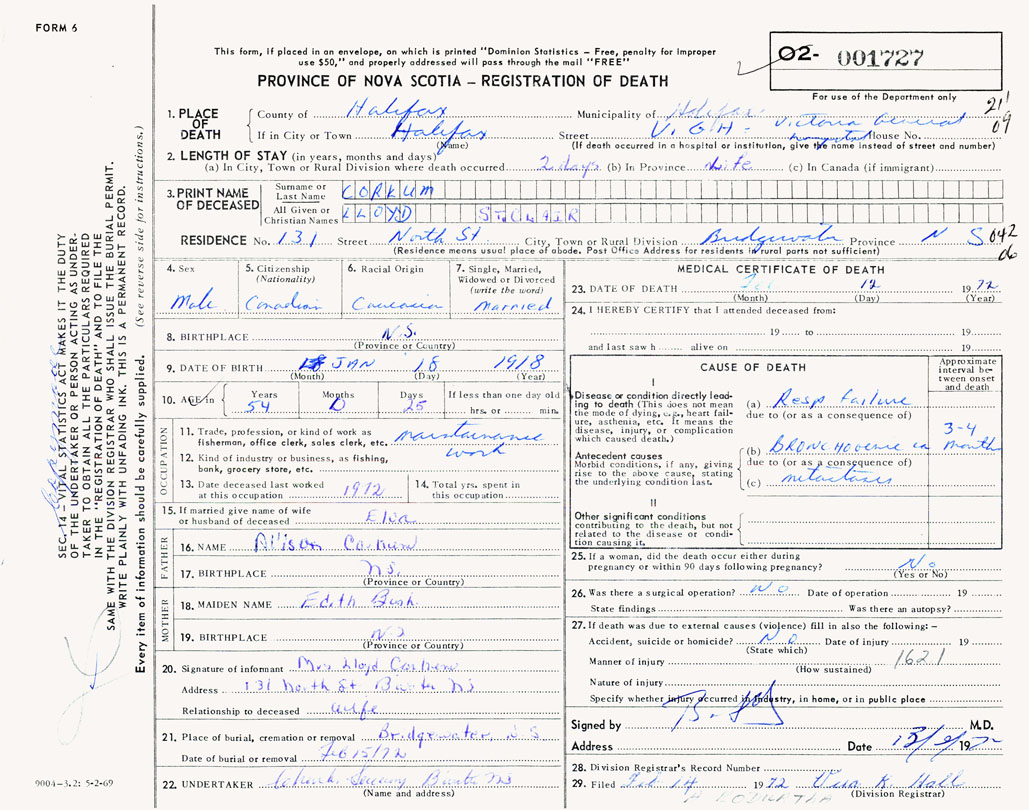 FORM 6
This form, if placed in an envelope, on which is printed "Dominion Statistics – Free, penalty for improper
use $50," and properly addressed will pass through the mail "FREE"
PROVINCE OF NOVA SCOTIA – REGISTRATION OF DEATH
02- 001727
For use of the Department only
21
09
1. PLACE OF DEATH
County of Halifax Municipality of Halifax
If in City or Town Halifax Street V. G. H. - Victoria General House No.
(Name) (If death occurred in a hospital or institution, give the name instead of street and number)
2. LENGTH OF STAY (in years, months and days)
(a) In City, Town or Rural Division where death occurred 2 days (b) In Province Life (c) In Canada (if immigrant)
3. PRINT NAME OF DECEASED
Surname or Last Name CORKUM
All Given or Christian Names LLOYD ST.CLAIR
RESIDENCE No. 131 Street North St City, Town or Rural Division Bridgewater Province N S 042
06
(Residence means usual place of abode. Post Office Address for residents in rural parts not sufficient)
4. Sex
Male
5. Citizenship
(Nationality)
Canadian
6. Racial Origin
Caucasian
7. Single, Married,
Widowed or Divorced
(write the word)
Married
8. BIRTHPLACE N.S.
(Province or Country)
9. DATE OF BIRTH JAN 18 1918
(Month) (Day) (Year)
10. AGE in
Years Months Days If less than one day old
54 0 25 hrs. or min.
OCCUPATION
11. Trade, profession, or kind of work as
fisherman, office clerk, sales clerk, etc. maintainance
work
12. Kind of industry or business, as fishing,
bank, grocery store, etc.
13. Date deceased last worked
at this occupation 1972
14. Total yrs. spent in
this occupation
15. If married give name of wife
or husband of deceased Elva
FATHER
16. NAME Allison Corkum
17. BIRTHPLACE N.S.
(Province or Country)
MOTHER
18. MAIDEN NAME Edith Bush
19. BIRTHPLACE N S
(Province or Country)
20. Signature of informant Mrs Lloyd Corkum
Address 131 North St NS
Relationship to deceased wife
21. Place of burial, cremation or removal Bridgewater, N S
Date of burial or removal Feb 15/72
22. UNDERTAKER NS
(Name and address)
MEDICAL CERTIFICATE OF DEATH
23. DATE OF DEATH Feb 12 1972
(Month) (Day) (Year)
24. I HEREBY CERTIFY that I attended deceased from:
19 to 19
and last saw h alive on 19
CAUSE OF DEATH
Approximate
interval be-
tween onset
and death
I
Disease or condition directly lead-
ing to death (This does not mean
the mode of dying, e.g., heart fail-
ure, asthenia, etc. It means the
disease, injury, or complication
which caused death.)
(a) Resp failure
due to (or as a consequence of)
Antecedent causes
Morbid conditions, if any, giving
rise to the above cause, stating
the underlying condition last.
3-4
months
(b) BRONCHOGENIC ca
due to (or as a consequence of)
(c) metastases
II
Other significant conditions
contributing to the death, but not
related to the disease or condi-
tion causing it.
25. If a woman, did the death occur either during
pregnancy or within 90 days following pregnancy? No
(Yes or No)
26. Was there a surgical operation? NO Date of operation 19
State findings Was there an autopsy?
27. If death was due to external causes (violence) fill in also the following: –
Accident, suicide or homicide? NO Date of injury 19
(State which)
Manner of injury 1621
(How sustained)
Nature of injury
Specify whether injury occurred in industry, in home, or in public place
Signed by M.D.
Address Date 13/2/1972
28. Division Registrar's Record Number
29. Filed Feb 14 1972 Vera K. Halls
(Division Registrar)
SEC. 14 – VITAL STATISTICS ACT MAKES IT THE DUTY
OF THE UNDERTAKER OR PERSON ACTING AS UNDER-
TAKER TO OBTAIN ALL THE PARTICULARS REQUIRED
IN THE "REGISTRATION OF DEATH" AND TO FILE THE
SAME WITH THE DIVISION REGISTRAR WHO SHALL ISSUE THE BURIAL PERMIT.
WRITE PLAINLY WITH UNFADING INK. THIS IS A PERMANENT RECORD.
Every item of information should be carefully supplied. (See reverse side for instructions.)
9004–3.2: 5-2-69